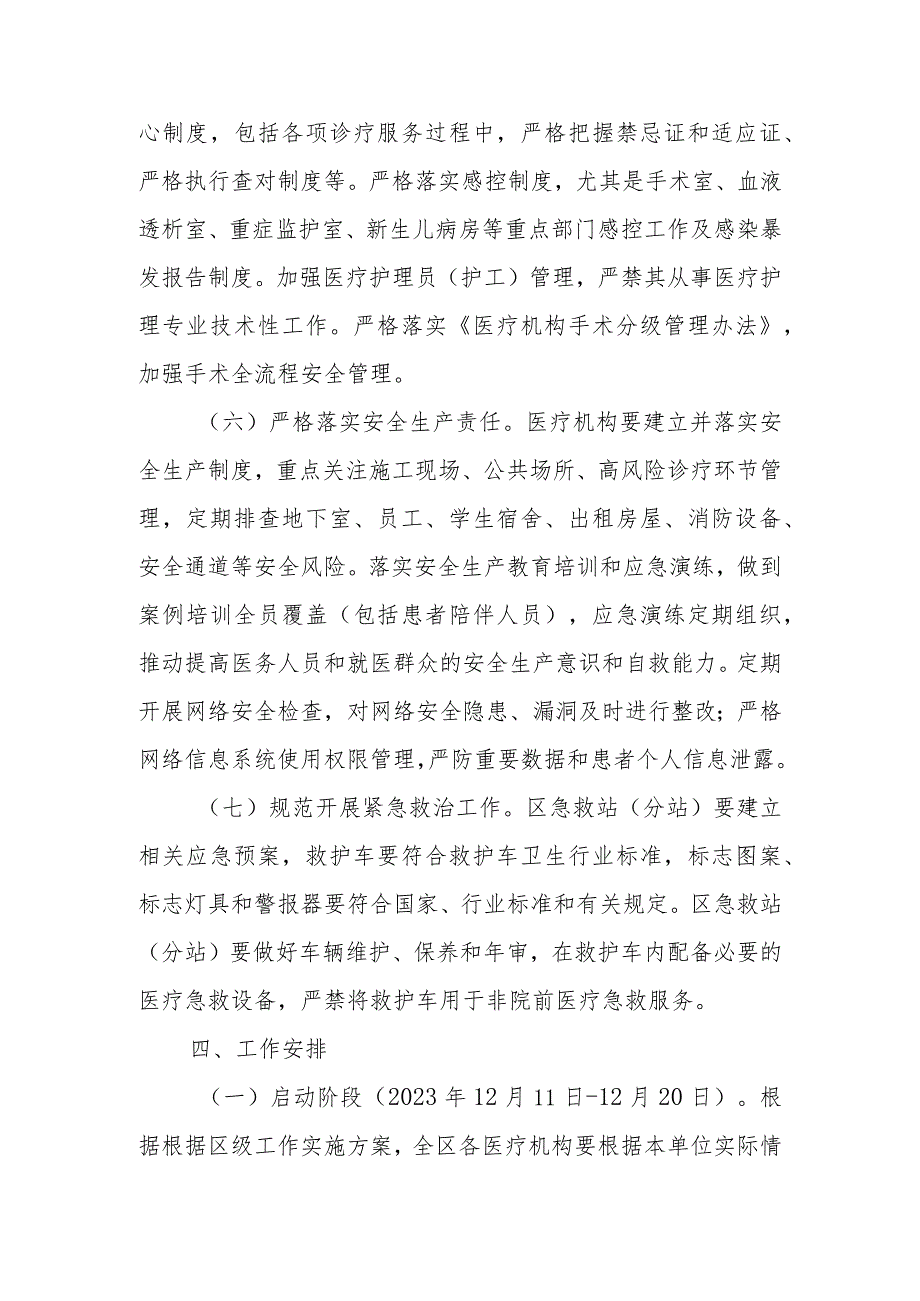 心制度，包括各项诊疗服务过程中，严格把握禁忌证和适应证、
严格执行查对制度等。严格落实感控制度，尤其是手术室、血液
透析室、重症监护室、新生儿病房等重点部门感控工作及感染暴
发报告制度。加强医疗护理员（护工）管理，严禁其从事医疗护
理专业技术性工作。严格落实《医疗机构手术分级管理办法》，
加强手术全流程安全管理。
（六）严格落实安全生产责任。医疗机构要建立并落实安
全生产制度，重点关注施工现场、公共场所、高风险诊疗环节管
理，定期排查地下室、员工、学生宿舍、出租房屋、消防设备、
安全通道等安全风险。落实安全生产教育培训和应急演练，做到
案例培训全员覆盖（包括患者陪伴人员），应急演练定期组织，
推动提高医务人员和就医群众的安全生产意识和自救能力。定期
开展网络安全检查，对网络安全隐患、漏洞及时进行整改；严格
网络信息系统使用权限管理，严防重要数据和患者个人信息泄露。
（七）规范开展紧急救治工作。区急救站（分站）要建立
相关应急预案，救护车要符合救护车卫生行业标准，标志图案、
标志灯具和警报器要符合国家、行业标准和有关规定。区急救站
（分站）要做好车辆维护、保养和年审，在救护车内配备必要的
医疗急救设备，严禁将救护车用于非院前医疗急救服务。
四、工作安排
（一）启动阶段（2023 年 12 月 11 日-12 月 20 日）。根
据根据区级工作实施方案，全区各医疗机构要根据本单位实际情